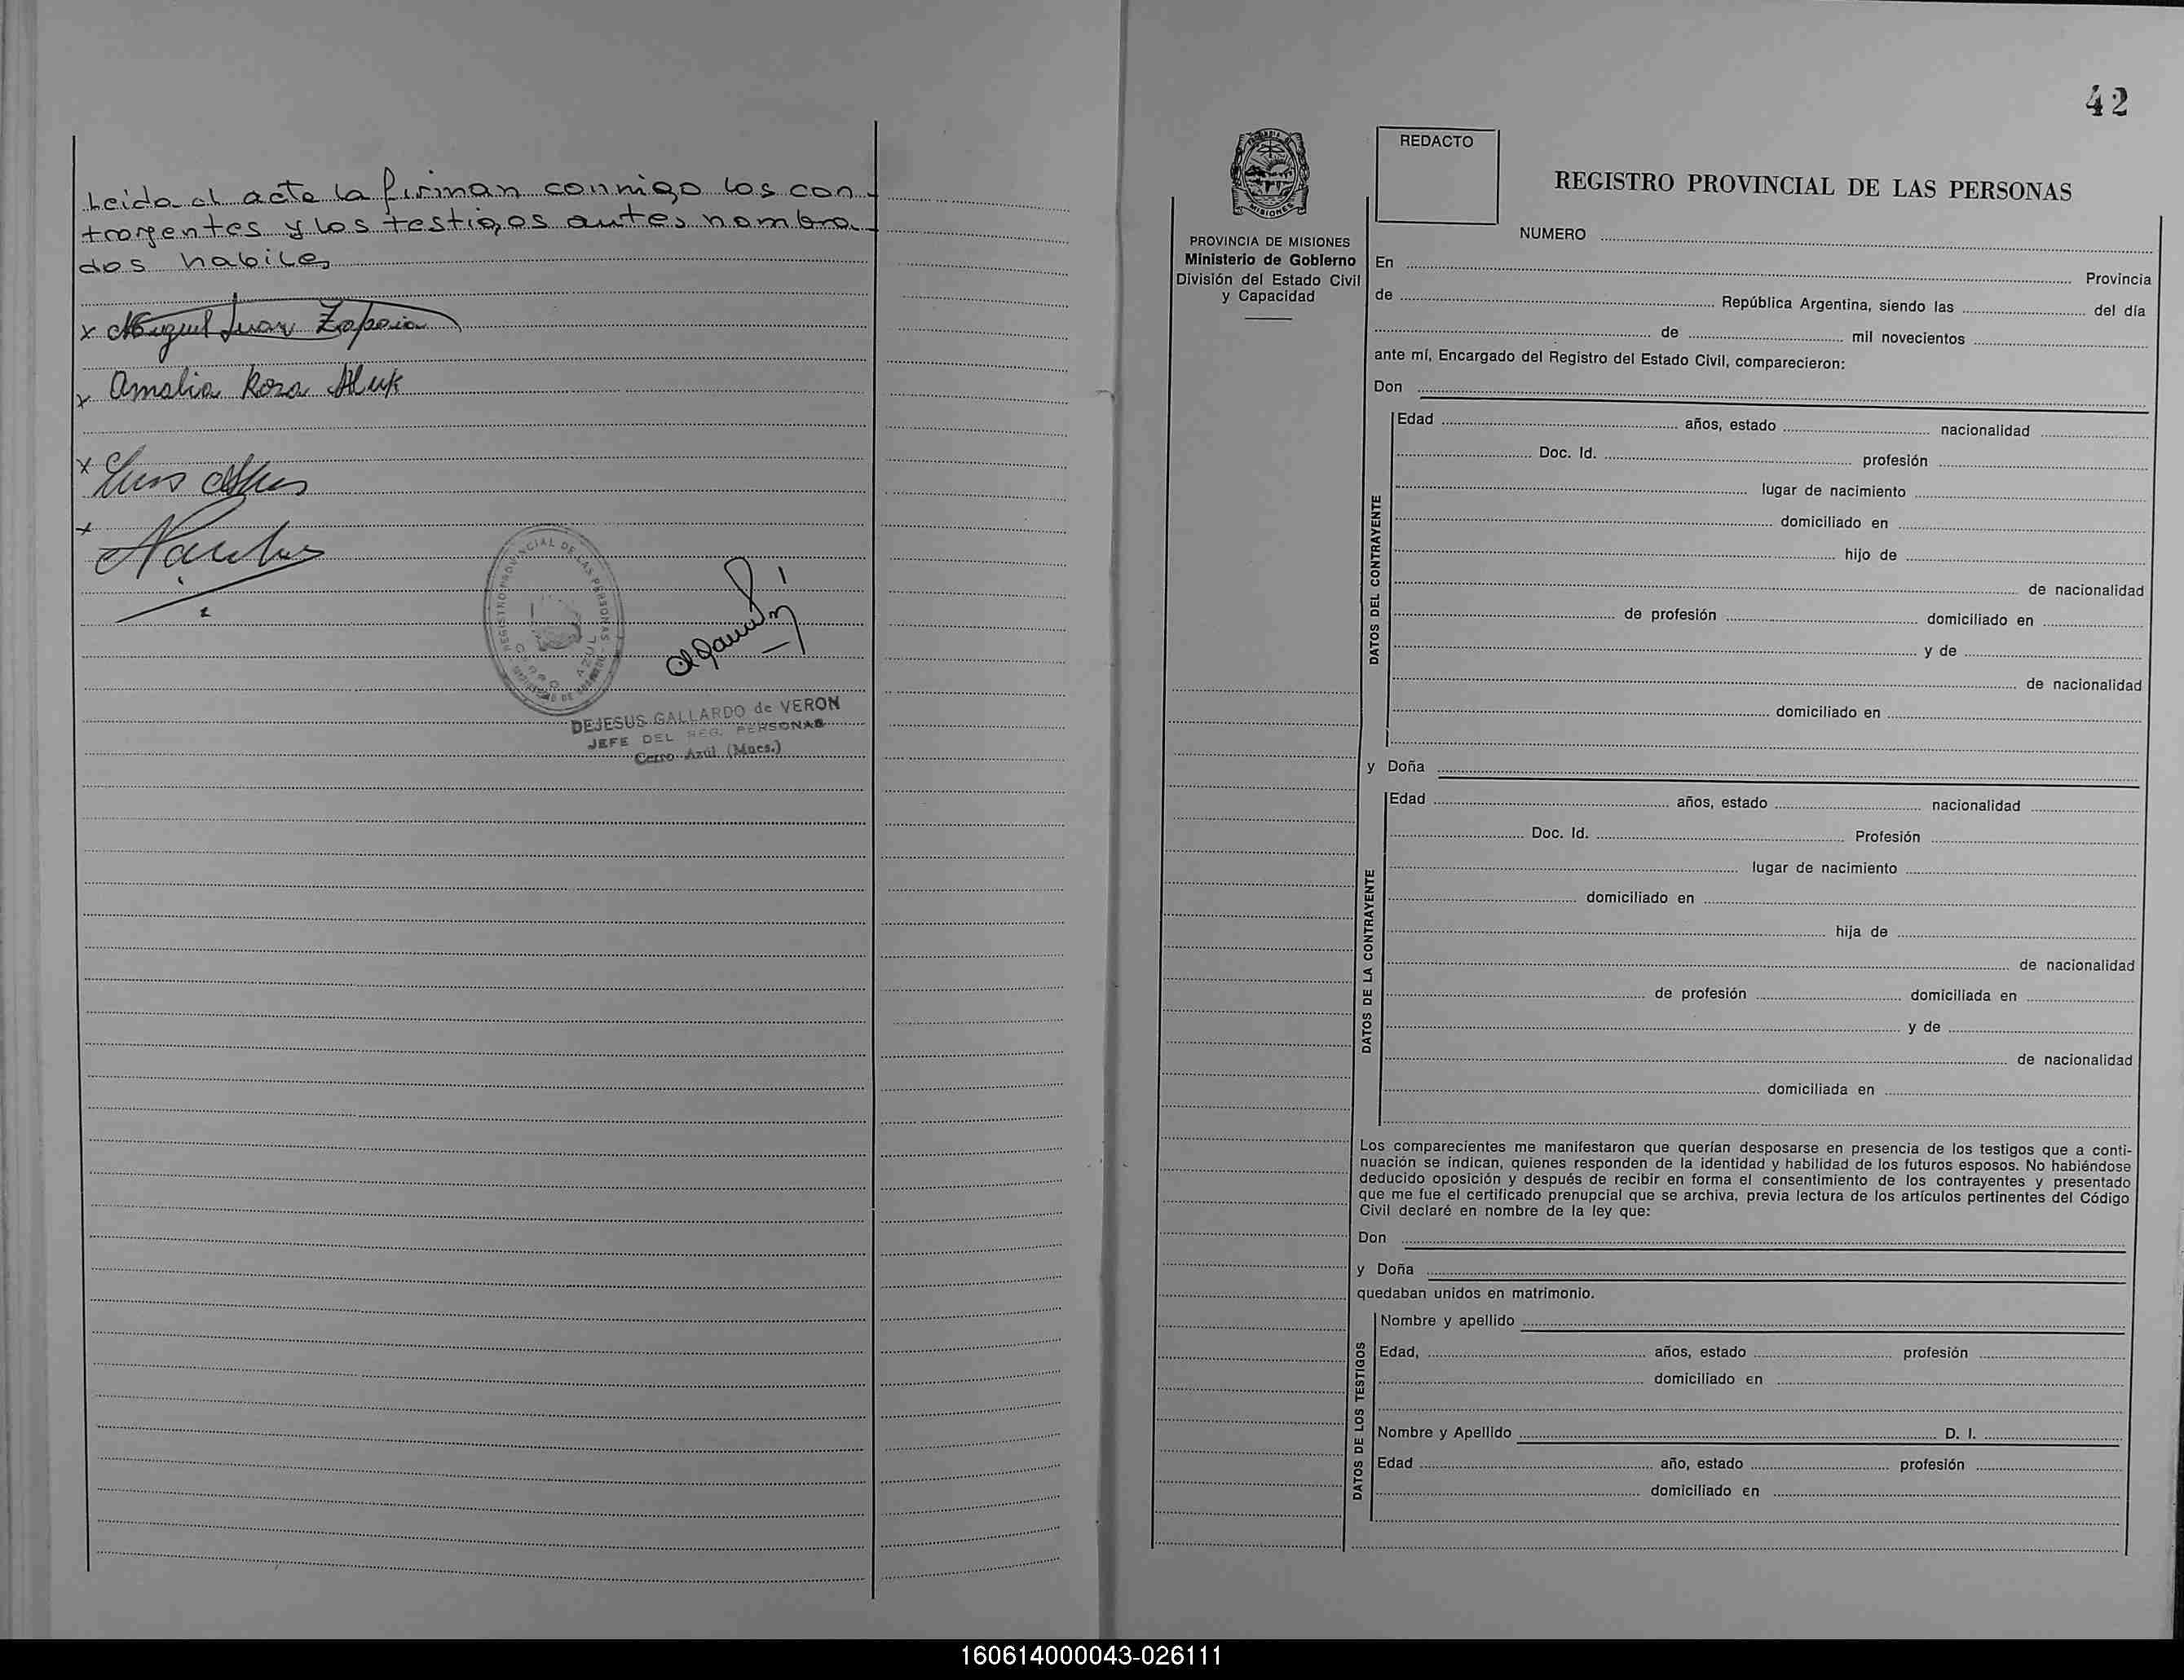 Leida el acta la firman conmigo los con-
trayentes y los testigos antes nombra-
dos habiles
x Miguel Juan Zapaia
x Amalia Rosa Aluk
x Luis
x
REGISTRO PROVINCIAL DE LAS PERSONAS
CERRO AZUL
DEJESUS GALLARDO de VERON
JEFE DEL REG. PERSONAS
Cerro Azúl (Mnes.)
42
MISIONES
PROVINCIA DE MISIONES
Ministerio de Gobierno
División del Estado Civil
y Capacidad
REDACTO
REGISTRO PROVINCIAL DE LAS PERSONAS
NUMERO
En Provincia
de República Argentina, siendo las del día
de mil novecientos
ante mí, Encargado del Registro del Estado Civil, comparecieron:
Don
DATOS DEL CONTRAYENTE
Edad años, estado nacionalidad
Doc. Id. profesión
lugar de nacimiento
domiciliado en
hijo de
de nacionalidad
de profesión domiciliado en
y de
de nacionalidad
domiciliado en
y Doña
DATOS DE LA CONTRAYENTE
Edad años, estado nacionalidad
Doc. Id. Profesión
lugar de nacimiento
domiciliado en
hija de
de nacionalidad
de profesión domiciliada en
y de
de nacionalidad
domiciliada en
Los comparecientes me manifestaron que querían desposarse en presencia de los testigos que a conti-
nuación se indican, quienes responden de la identidad y habilidad de los futuros esposos. No habiéndose
deducido oposición y después de recibir en forma el consentimiento de los contrayentes y presentado
que me fue el certificado prenupcial que se archiva, previa lectura de los artículos pertinentes del Código
Civil declaré en nombre de la ley que:
Don
y Doña
quedaban unidos en matrimonio.
DATOS DE LOS TESTIGOS
Nombre y apellido
Edad, años, estado profesión
domiciliado en
Nombre y Apellido D. I.
Edad año, estado profesión
domiciliado en
160614000043-026111